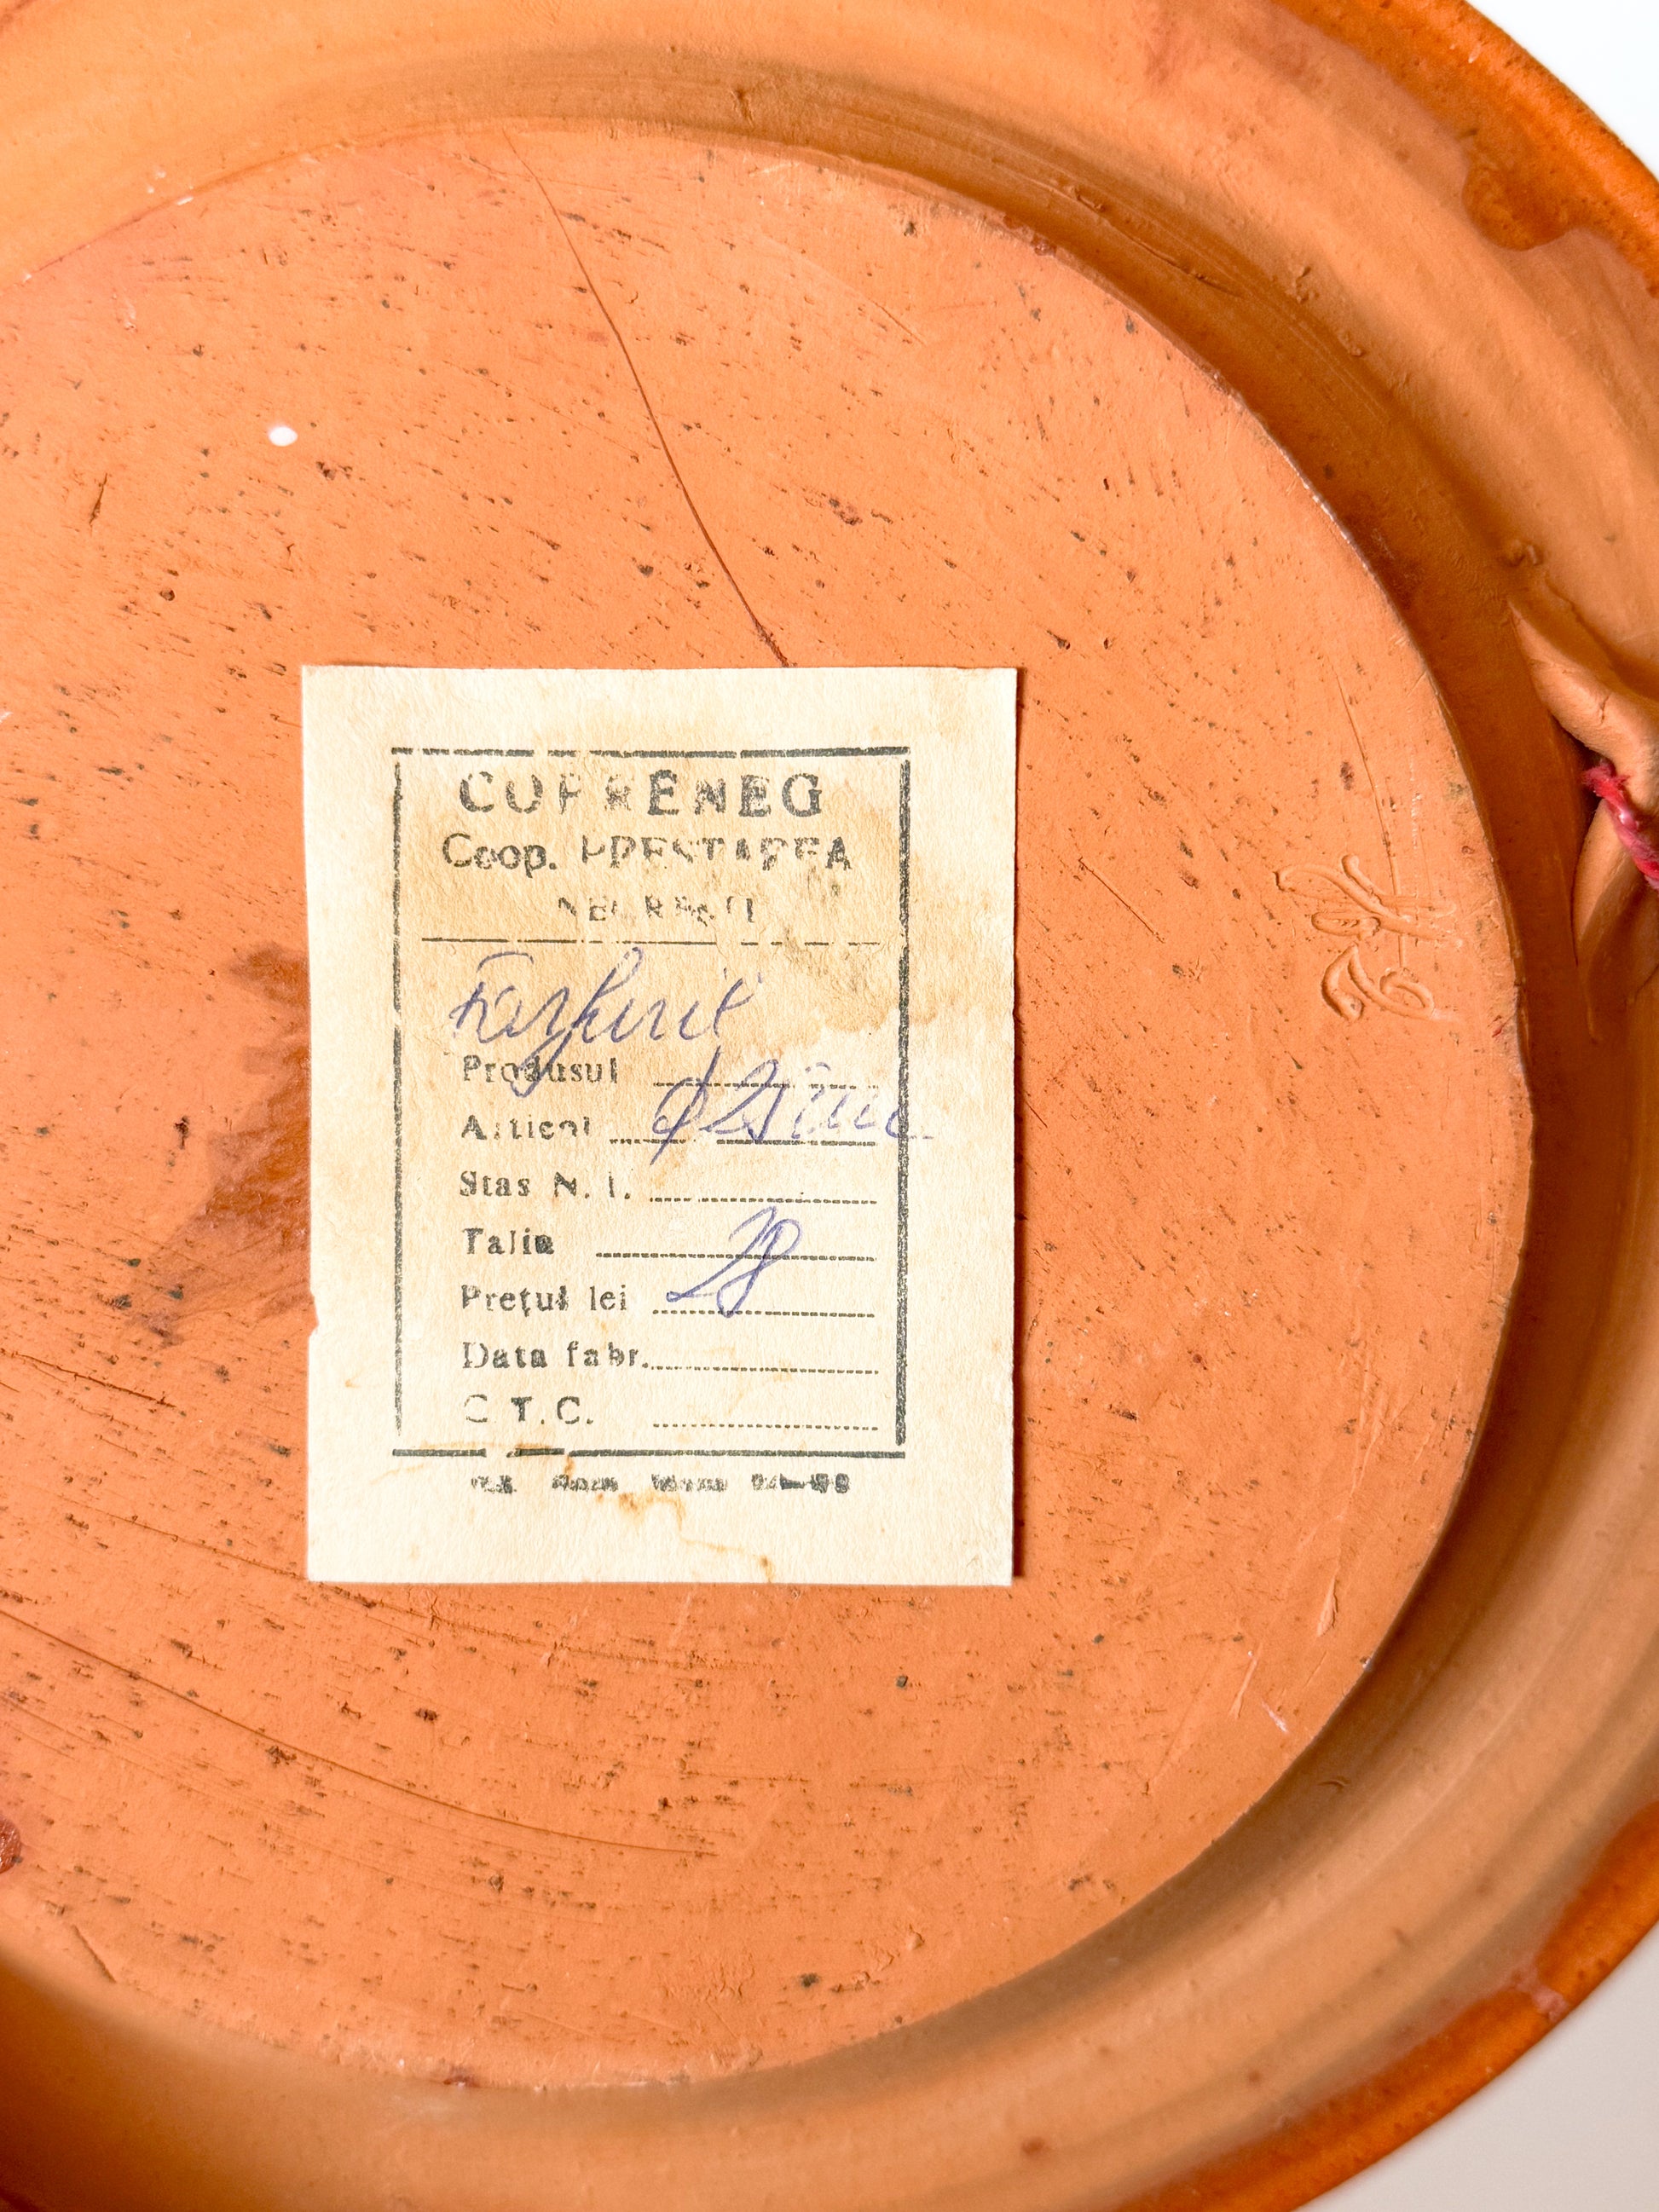 COPRENEG
Coop. PRESTAREA
NEGREȘTI
Farfurii
Produsul
Articol
Stas N.
Talia
Prețul lei 28
Data fabr.
C.T.C.